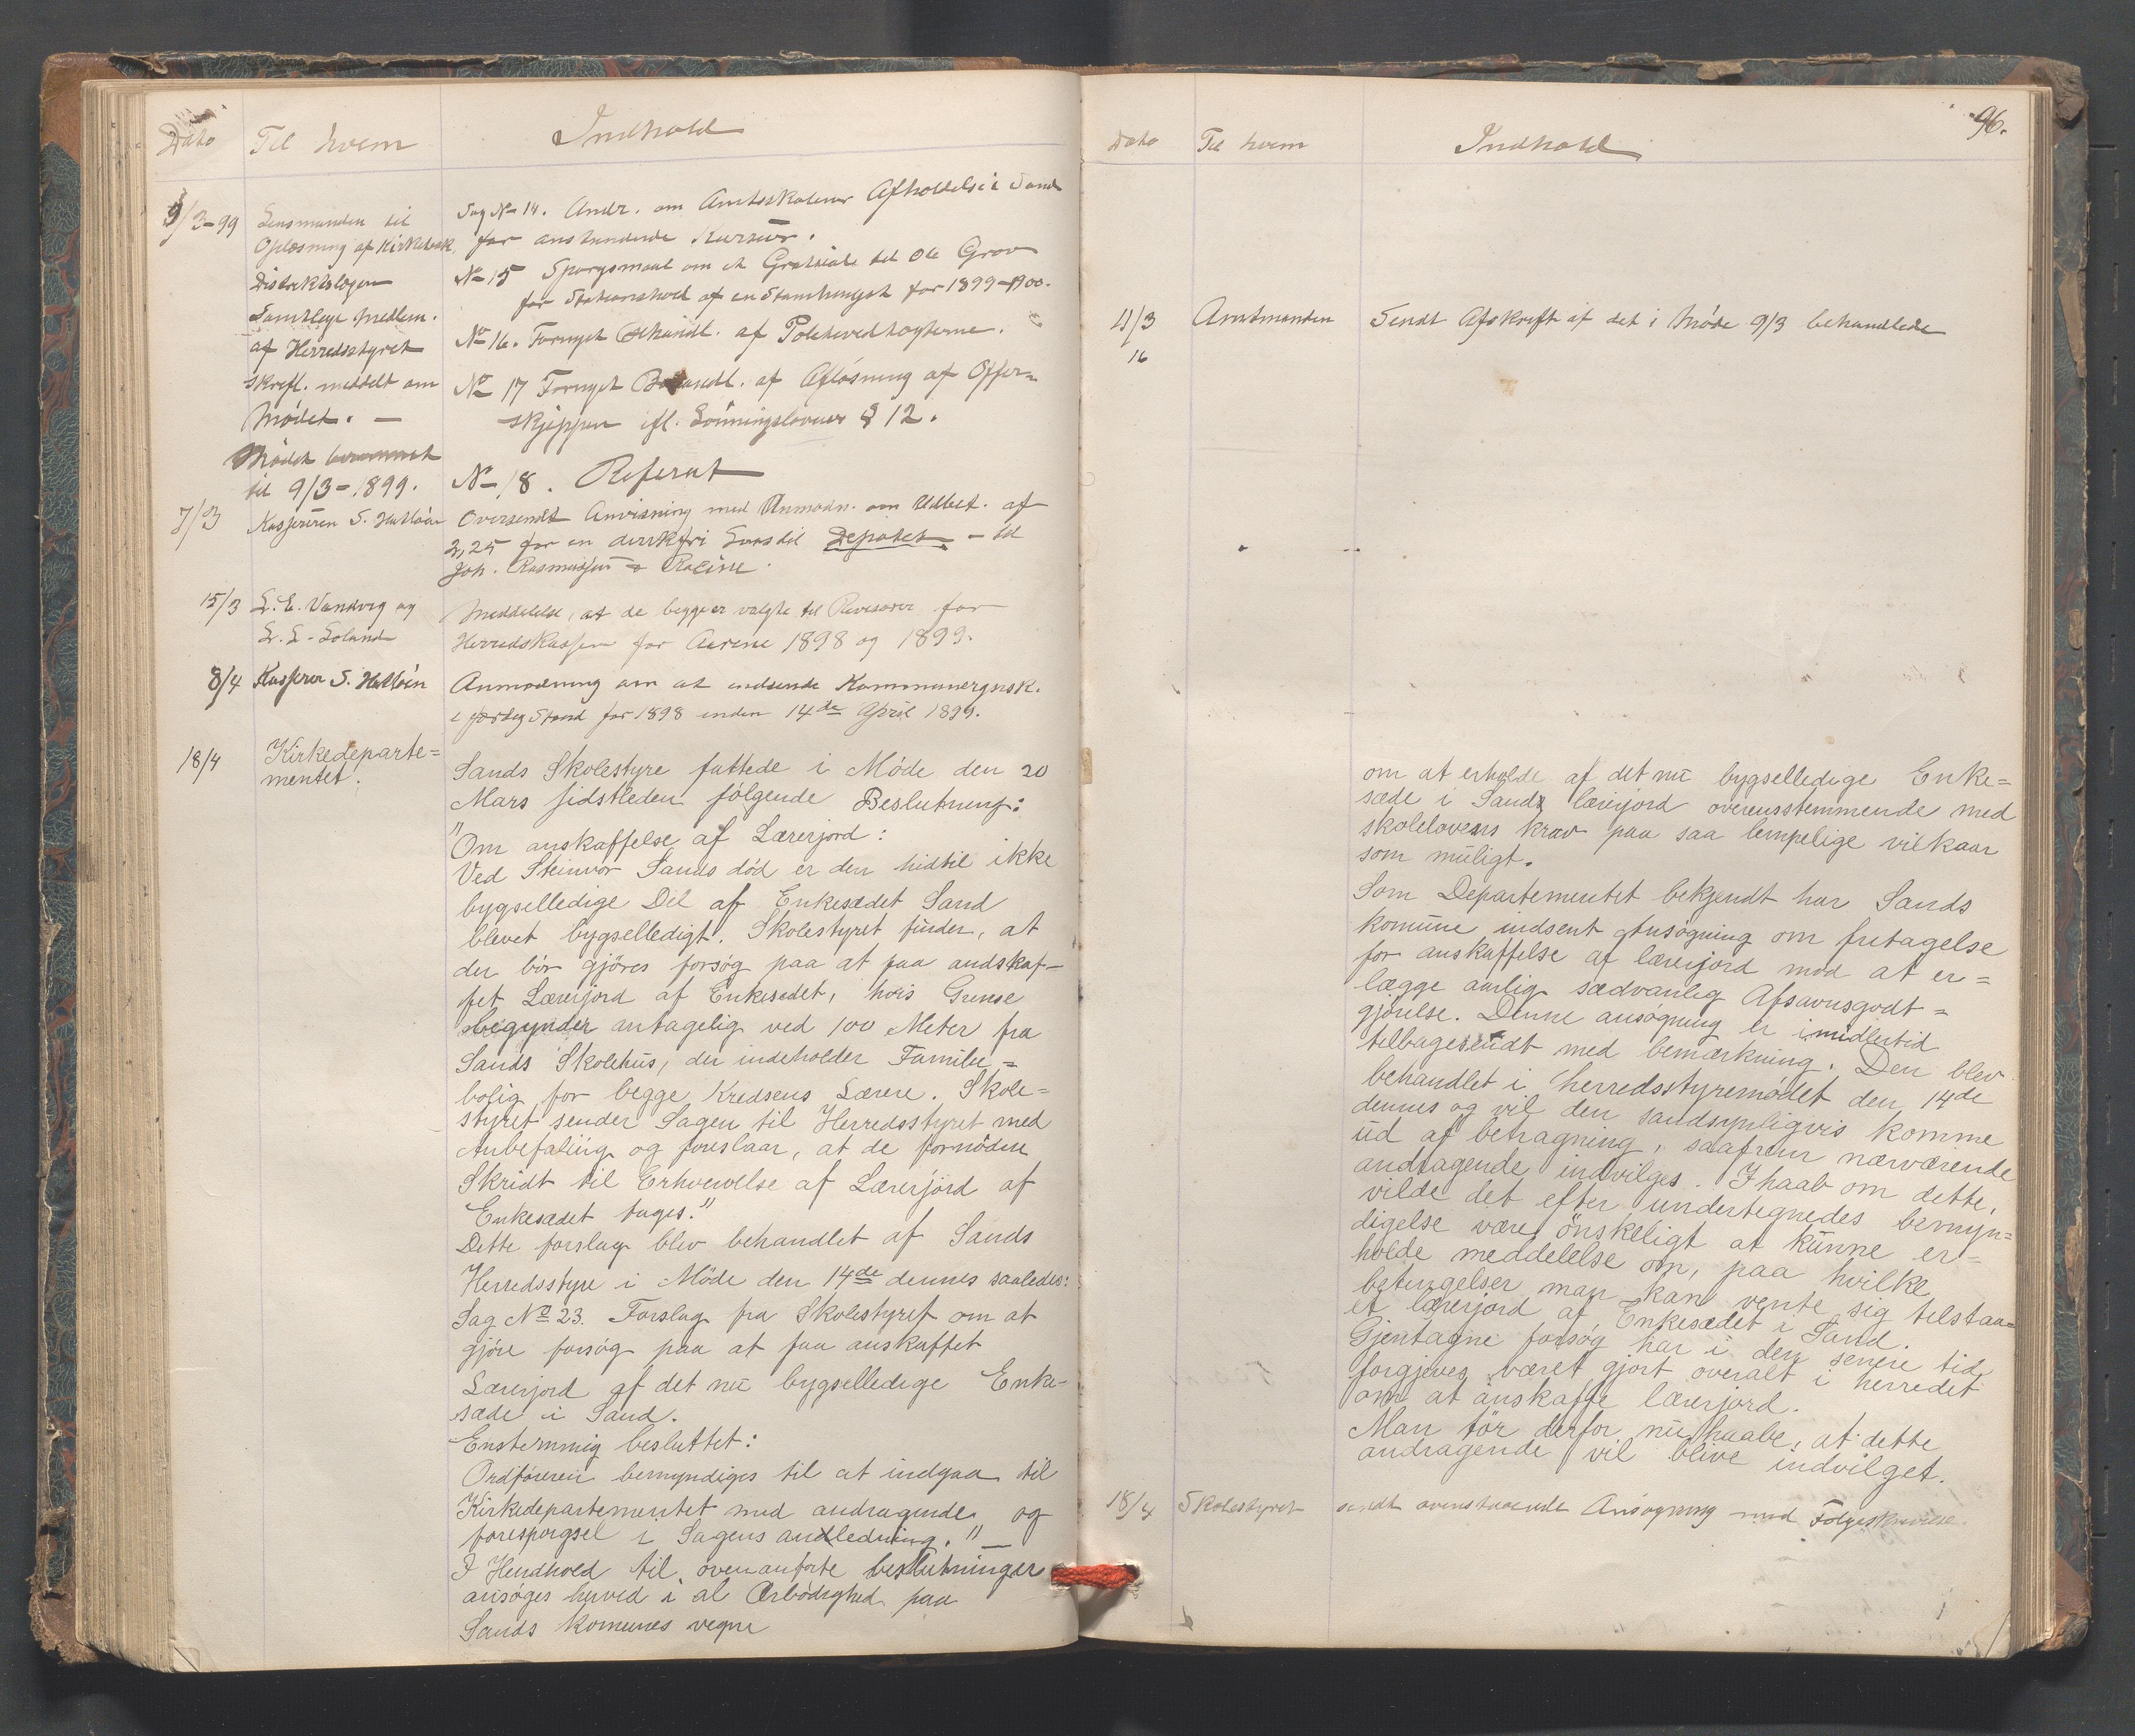 Dato Til hvem Indhold
9/3-99 Lensmanden til
Oplæsning af Kirkebak.
Distriktslægen
Samtlige Medlem.
af Herredsstyret
skrftl. meddelt om
Mødet. —
Mødet berammet
til 9/3-1899.
Sag No 14. Andr. om Amtsskolens Afholdelse i Sand
for anstundende Kursus.
No 15 Spørgsmaal om et Gratiale til Ole Grov
for Stationshold af en Stamhingst for 1899-1900.
No 16. Fornyet Behandl. af Politivedtægterne.
No 17 Fornyet Behandl. af Afløsning af Offer-
skjæppen ifl. Lønningslovens § 12.
No 18. Referat
7/3 Kasjereren S. Hatløen Oversendt Anvisning med Anmodn. om Udbet. af
2,25 for en dirkfri Laas til Depotet - til
Joh. Rasmussen Racine.
15/3 L. E. Vandvig og Meddelelse, at de begge er valgte til Revisorer for
L. L. Loland Herredskassen for Aarene 1898 og 1899.
8/4 Kasserer S. Hatløen Anmodning om at indsende Kommuneregnsk.
i færdig Stand for 1898 inden 14de April 1899.
18/4 Kirkedeparte=
mentet.
Sands Skolestyre fattede i Møde den 20
Mars sidstleden følgende Beslutning:
"Om anskaffelse af Lærerjord:
Ved Steinvor Sands død er den hidtil ikke
bygselledige Del af Enkesædet Sand
blevet bygselledigt. Skolestyret finder, at
der bör gjöres forsøg paa at faa andskaf-
fet Lærerjord af Enkesædet, hvis Grense
begynder antagelig ved 100 Meter fra
Sands Skolehus, der indeholder Familie=
bolig for begge Kredsens Lærere. Skole=
styret sender Sagen til Herredsstyret med
Anbefaling og foreslaar, at de fornödne
Skridt til Erhvervelse af Lærerjord af
Enkesædet tages."
Dette forslag blev behandlet af Sands
Herredsstyre i Möde den 14de dennes saaledes:
Sag No 23. Forslag fra Skolestyret om at
gjöre forsög paa at faa anskaffet
Lærerjord af det nu bygselledige Enke-
sæde i Sand.
Enstemmig besluttet:
Ordföreren bemyndiges til at indgaa til
Kirkedepartementet med andragende og
foresporgsel i Sagens andledning." —
I Hendhold til ovenanförte beslutninger
ansöges herved i al Ærbödighed paa
Sands komunes vegne
96.
Dato Til hvem Indhold
11/3 Amtmanden Sendt Afskrift af det i Møde 9/3 behandlede
16
om at erholde af det nu bygselledige Enke=
sæde i Sand lærerjord overensstemmende med
skolelovens krav paa saa lempelige vilkaar
som muligt.
Som Departementet bekjendt har Sands
komune indsent Ansögning om fritagelse
for anskaffelse af lærerjord mod at er=
lægge aarlig sædvanlig Afsavnsgodt=
gjörelse. Denne ansögning er imidlertid
tilbagesendt med bemærkning. Den blev
behandlet i herredsstyremödet den 14de
dennes og vil den sandsynligvis komme
ud af betragning, saafremt nærværende
andragende indvilges. I haab om dette,
vilde det efter undertegnedes bemyn=
digelse være önskeligt at kunne er=
holde meddelelse om, paa hvilke
betingelser man kan vente sig tilstaa=
et lærerjord af Enkesædet i Sand.
Gjentagne forsög har i den senere tid
forgjeves været gjort overalt i herredet
om at anskaffe lærerjord.
Man tör derfor nu haabe, at dette
andragende vil blive indvilget.
18/4 Skolestyret sendt ovenstaaende Ansøgning med Følgeskrivelse.